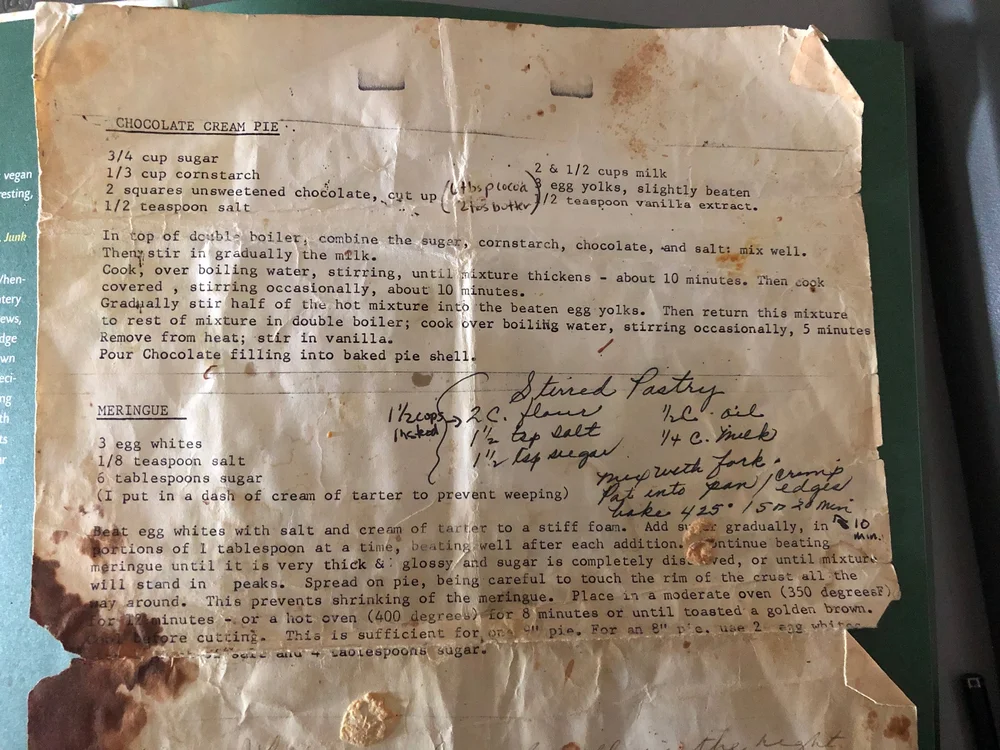 CHOCOLATE CREAM PIE
3/4 cup sugar
1/3 cup cornstarch
2 squares unsweetened chocolate, cut up (6 tbsp cocoa
2 tbs butter)
1/2 teaspoon salt
2 & 1/2 cups milk
3 egg yolks, slightly beaten
1/2 teaspoon vanilla extract.
In top of double boiler, combine the sugar, cornstarch, chocolate, and salt: mix well.
Then stir in gradually the milk.
Cook, over boiling water, stirring, until mixture thickens - about 10 minutes. Then cook
covered , stirring occasionally, about 10 minutes.
Gradually stir half of the hot mixture into the beaten egg yolks. Then return this mixture
to rest of mixture in double boiler; cook over boiling water, stirring occasionally, 5 minutes
Remove from heat; stir in vanilla.
Pour Chocolate filling into baked pie shell.
Stirred Pastry
1 1/2 cups
2 C. flour
1 1/2 tsp salt
1 1/2 tsp sugar
1/2 C. oil
1/4 C. milk
mix with fork.
Pat into pan / crimp
edges
bake 425° 15 20 min
10
min.
MERINGUE
3 egg whites
1/8 teaspoon salt
6 tablespoons sugar
(I put in a dash of cream of tarter to prevent weeping)
Beat egg whites with salt and cream of tarter to a stiff foam. Add gradually, in
portions of 1 tablespoon at a time, beating well after each addition. Continue beating
meringue until it is very thick & glossy and sugar is completely or until mixture
will stand in peaks. Spread on pie, being careful to touch the rim of the crust all the
way around. This prevents shrinking of the meringue. Place in a moderate oven (350 degreesF)
for 12 minutes - or a hot oven (400 degrees) for 8 minutes or until toasted a golden brown.
before cutting. This is sufficient for one 9" pie. For an 8" pie, use 2 egg whites
salt and 4 tablespoons sugar.
the height
vegan
resting,
Junk
/hen-
ntery
ews,
dge
own
eci-
ng
th
ts
or